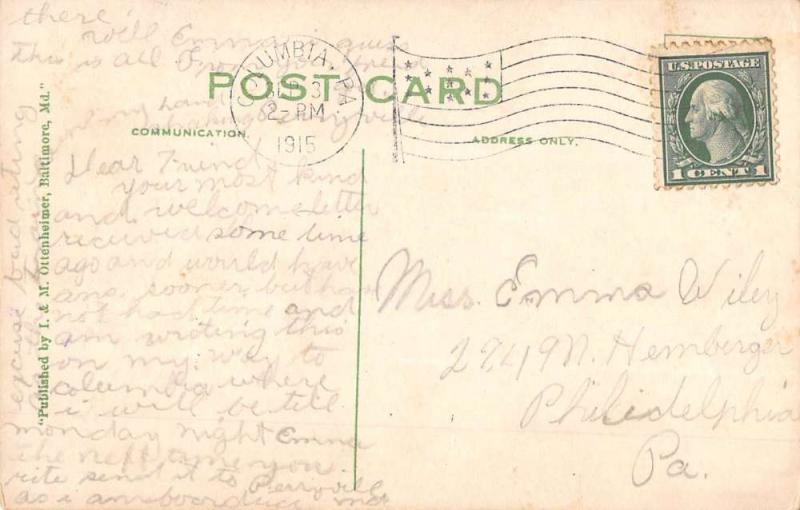 POST CARD
COMMUNICATION.
ADDRESS ONLY.
COLUMBIA, PA.
2 PM
1915
U.S. POSTAGE
1 CENT 1
"Published by I. & M. Ottenheimer, Baltimore, Md."
Dear Friend
your most kind
and welcome letter
received some time
ago and would have
ans. sooner but have
not had time and
am writing this
on my way to
Columbia where
i will be till
monday night Emma
the next time you
rite send it to Perryville
as i am boarding
there
Well Emma i guess
this is all From
excuse bad riting
Miss. Emma Wiley
2249 N. Hemberger
Philidelphia
Pa.